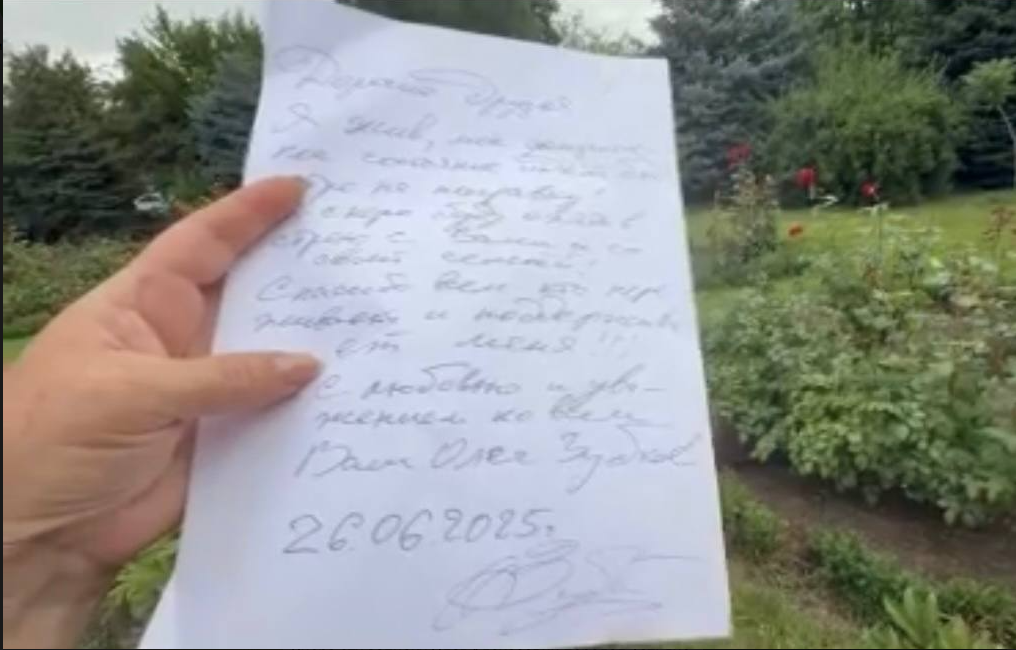 Дорогие друзья
Я жив, мое
мое
же на поправку!
Скоро буду опять в
строю с Вами и со
своей семьей!
Спасибо всем кто пере
живает и поддержива
ет меня!!!
С любовью и ува-
жением ко всем
Ваш Олег Зубков
26.06.2025г.